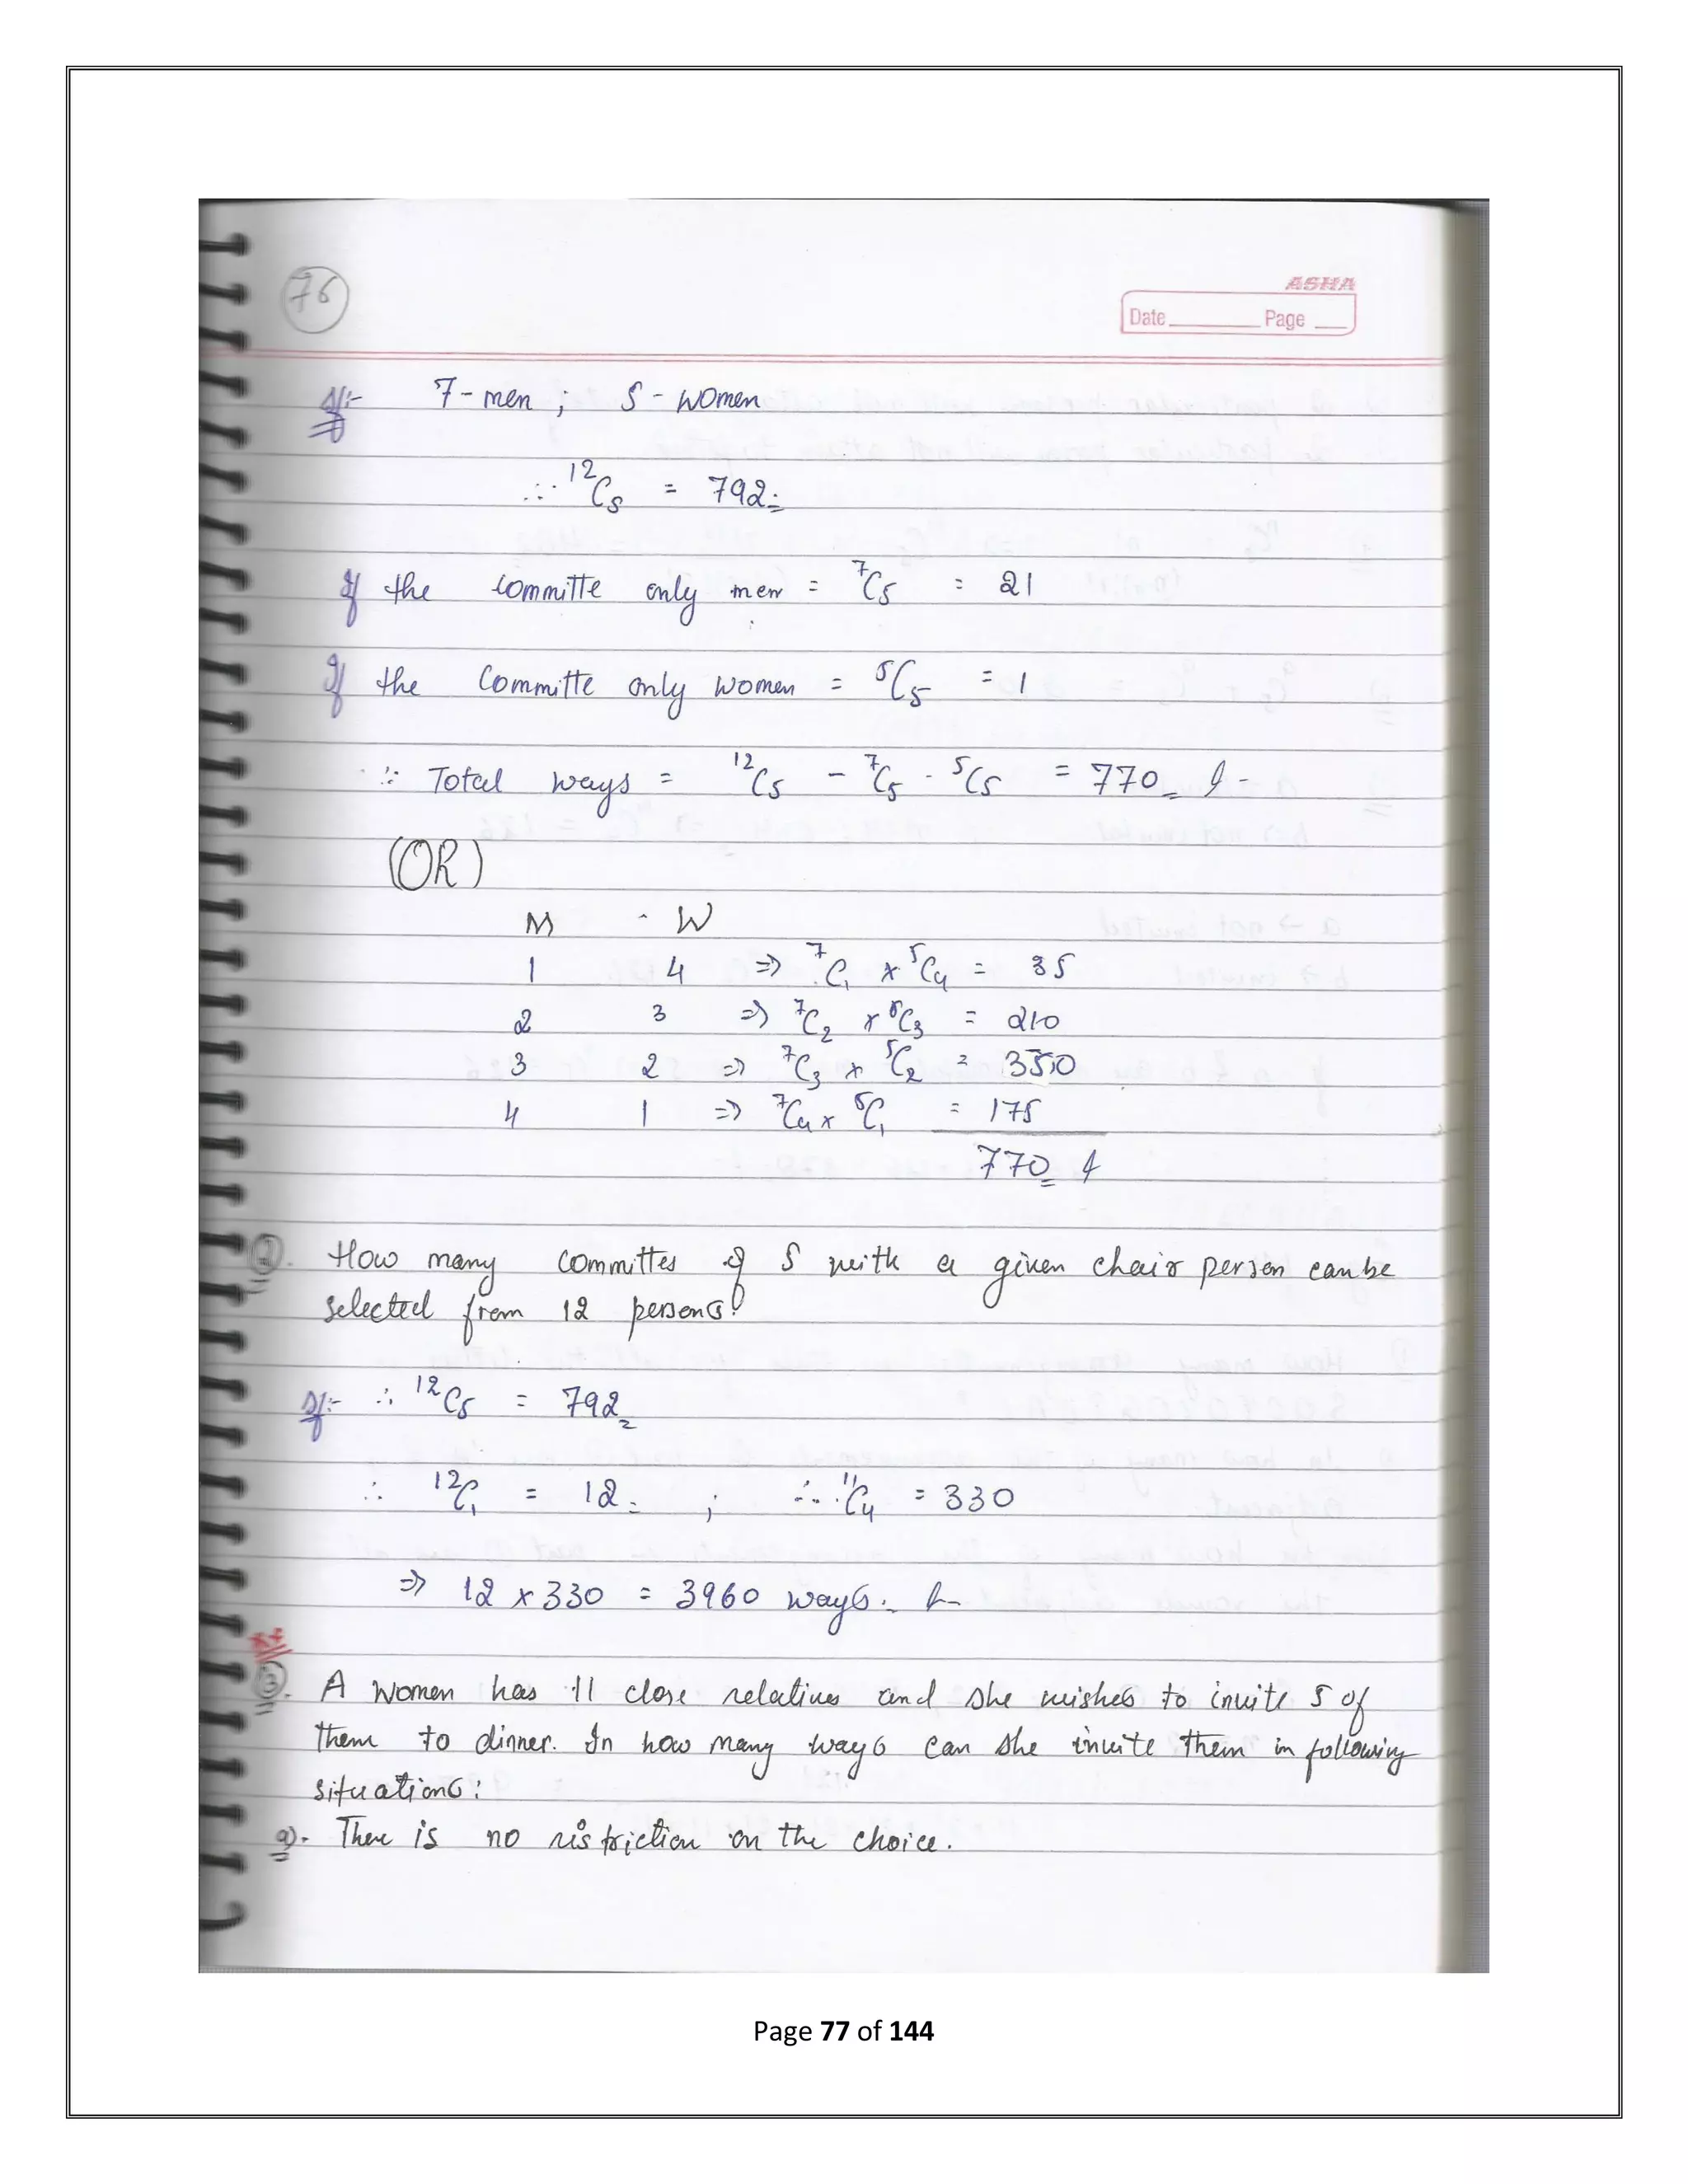 76
ASHA
Date Page
Sol:- 7 - men ; 5 - women
∴ ¹²C₅ = 792
If the committe only men = ⁷C₅ = 21
If the Committe only women = ⁵C₅ = 1
∴ Total ways = ¹²C₅ - ⁷C₅ - ⁵C₅ = 770
(OR)
M - W
1 4 => ⁷C₁ x ⁵C₄ = 35
2 3 => ⁷C₂ x ⁵C₃ = 210
3 2 => ⁷C₃ x ⁵C₂ = 350
4 1 => ⁷C₄ x ⁵C₁ = 175
770
2. How many committes of 5 with a given chair person can be
selected from 12 persons?
Sol:- ∴ ¹²C₅ = 792
∴ ¹²C₁ = 12 ; ∴ ¹¹C₄ = 330
=> 12 x 330 = 3960 ways.
3. A women has 11 close relatives and she wishes to invite 5 of
them to dinner. In how many ways can she invite them in following
situations:
a). There is no restriction on the choice.
Page 77 of 144